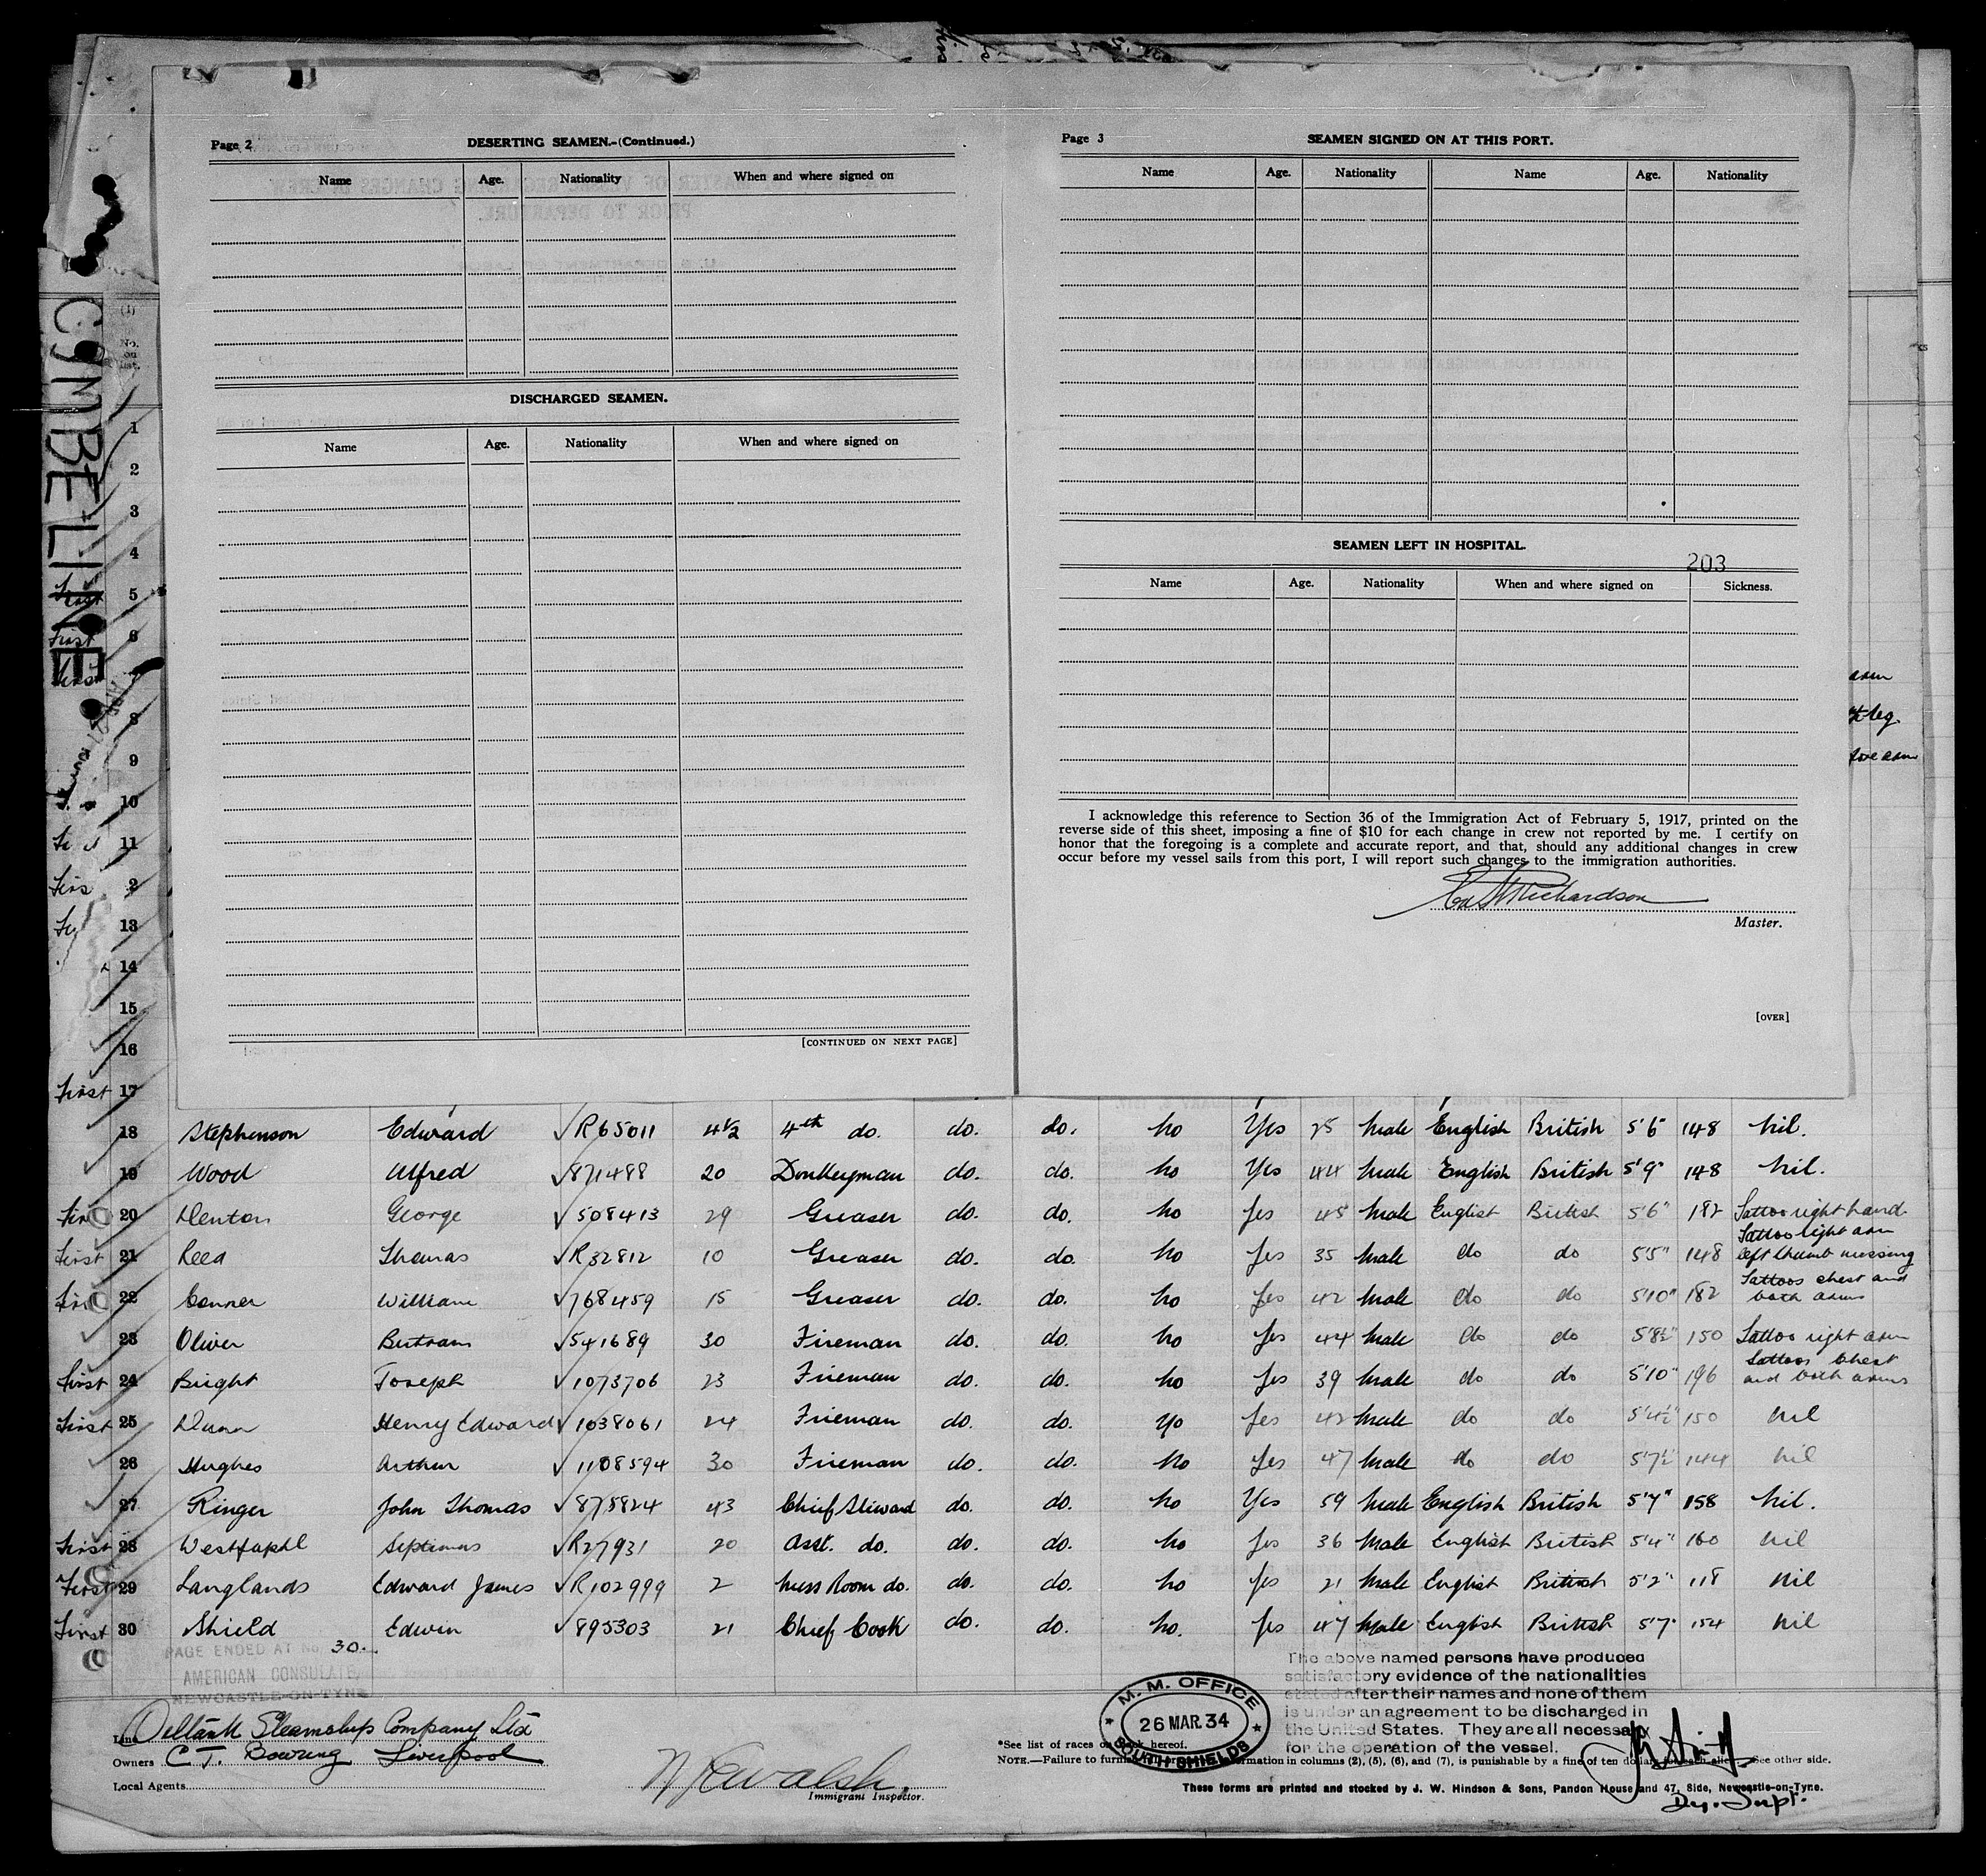 Page 2
DESERTING SEAMEN.-(Continued.)
Name Age. Nationality When and where signed on
DISCHARGED SEAMEN.
Name Age. Nationality When and where signed on
[CONTINUED ON NEXT PAGE]
Page 3
SEAMEN SIGNED ON AT THIS PORT.
Name Age. Nationality Name Age. Nationality
SEAMEN LEFT IN HOSPITAL.
203
Name Age. Nationality When and where signed on Sickness.
I acknowledge this reference to Section 36 of the Immigration Act of February 5, 1917, printed on the
reverse side of this sheet, imposing a fine of $10 for each change in crew not reported by me. I certify on
honor that the foregoing is a complete and accurate report, and that, should any additional changes in crew
occur before my vessel sails from this port, I will report such changes to the immigration authorities.
Richardson
Master.
[OVER]
CYMBELINE
(1)
No.
on
list.
1
2
3
4
5
First 6
7
8
9
10
11
2
13
14
15
16
First 17
arm
leg.
fore arm
18 Stephenson Edward R65011 4½ 4th do. do. do. no Yes 25 Male English British 5'6" 148 Nil.
19 Wood Alfred 871488 20 Donkeyman do. do. no Yes 44 Male English British 5'9" 148 Nil.
20 Denton George 508413 29 Greaser do. do. no Yes 45 Male English British 5'6" 182 Tattoo right hand
First 21 Reed Thomas R32812 10 Greaser do. do. no Yes 35 Male do do 5'5" 148 Tattoo right arm left thumb missing
22 Conner William 768459 15 Greaser do. do. no Yes 42 Male do do 5'10" 182 Tattoos chest and both arms
23 Oliver Bertram 541689 30 Fireman do. do. no Yes 44 Male do do 5'8½" 150 Tattoo right arm
First 24 Bright Joseph 1073706 23 Fireman do. do. no Yes 39 Male do do 5'10" 196 Tattoos Chest and both arms
First 25 Dunn Henry Edward 1038061 24 Fireman do. do. No Yes 42 Male do do 5'4½" 150 Nil
26 Hughes Arthur 1108594 30 Fireman do. do. No Yes 47 Male do do 5'7½" 144 Nil
27 Ringer John Thomas 875824 43 Chief Steward do. do. no Yes 59 Male English British 5'7" 158 Nil.
First 28 Westfaphl Septimus R27931 20 Asst. do. do. do. no Yes 36 Male English British 5'4" 160 Nil
First 29 Langlands Edward James R102999 2 Mess Room do. do. do. no Yes 21 Male English British 5'2" 118 Nil
First 30 Shield Edwin 895303 21 Chief Cook do. do. no. Yes 47 Male English British 5'7" 154 Nil
PAGE ENDED AT No. 30.
AMERICAN CONSULATE,
NEWCASTLE-ON-TYNE
Line Oiltank Steamship Company Ltd
Owners C.T. Bowring Liverpool
Local Agents
Walsh.
Immigrant Inspector.
M. M. OFFICE
26 MAR. 34
SOUTH SHIELDS
The above named persons have produced
satisfactory evidence of the nationalities
stated after their names and none of them
is under an agreement to be discharged in
the United States. They are all necessary
for the operation of the vessel.
*See list of races on back hereof.
NOTE.—Failure to furnish information in columns (2), (5), (6), and (7), is punishable by a fine of ten dollars for each alien. See other side.
These forms are printed and stocked by J. W. Hindson & Sons, Pandon House and 47, Side, Newcastle-on-Tyne.
Dy. Supt.